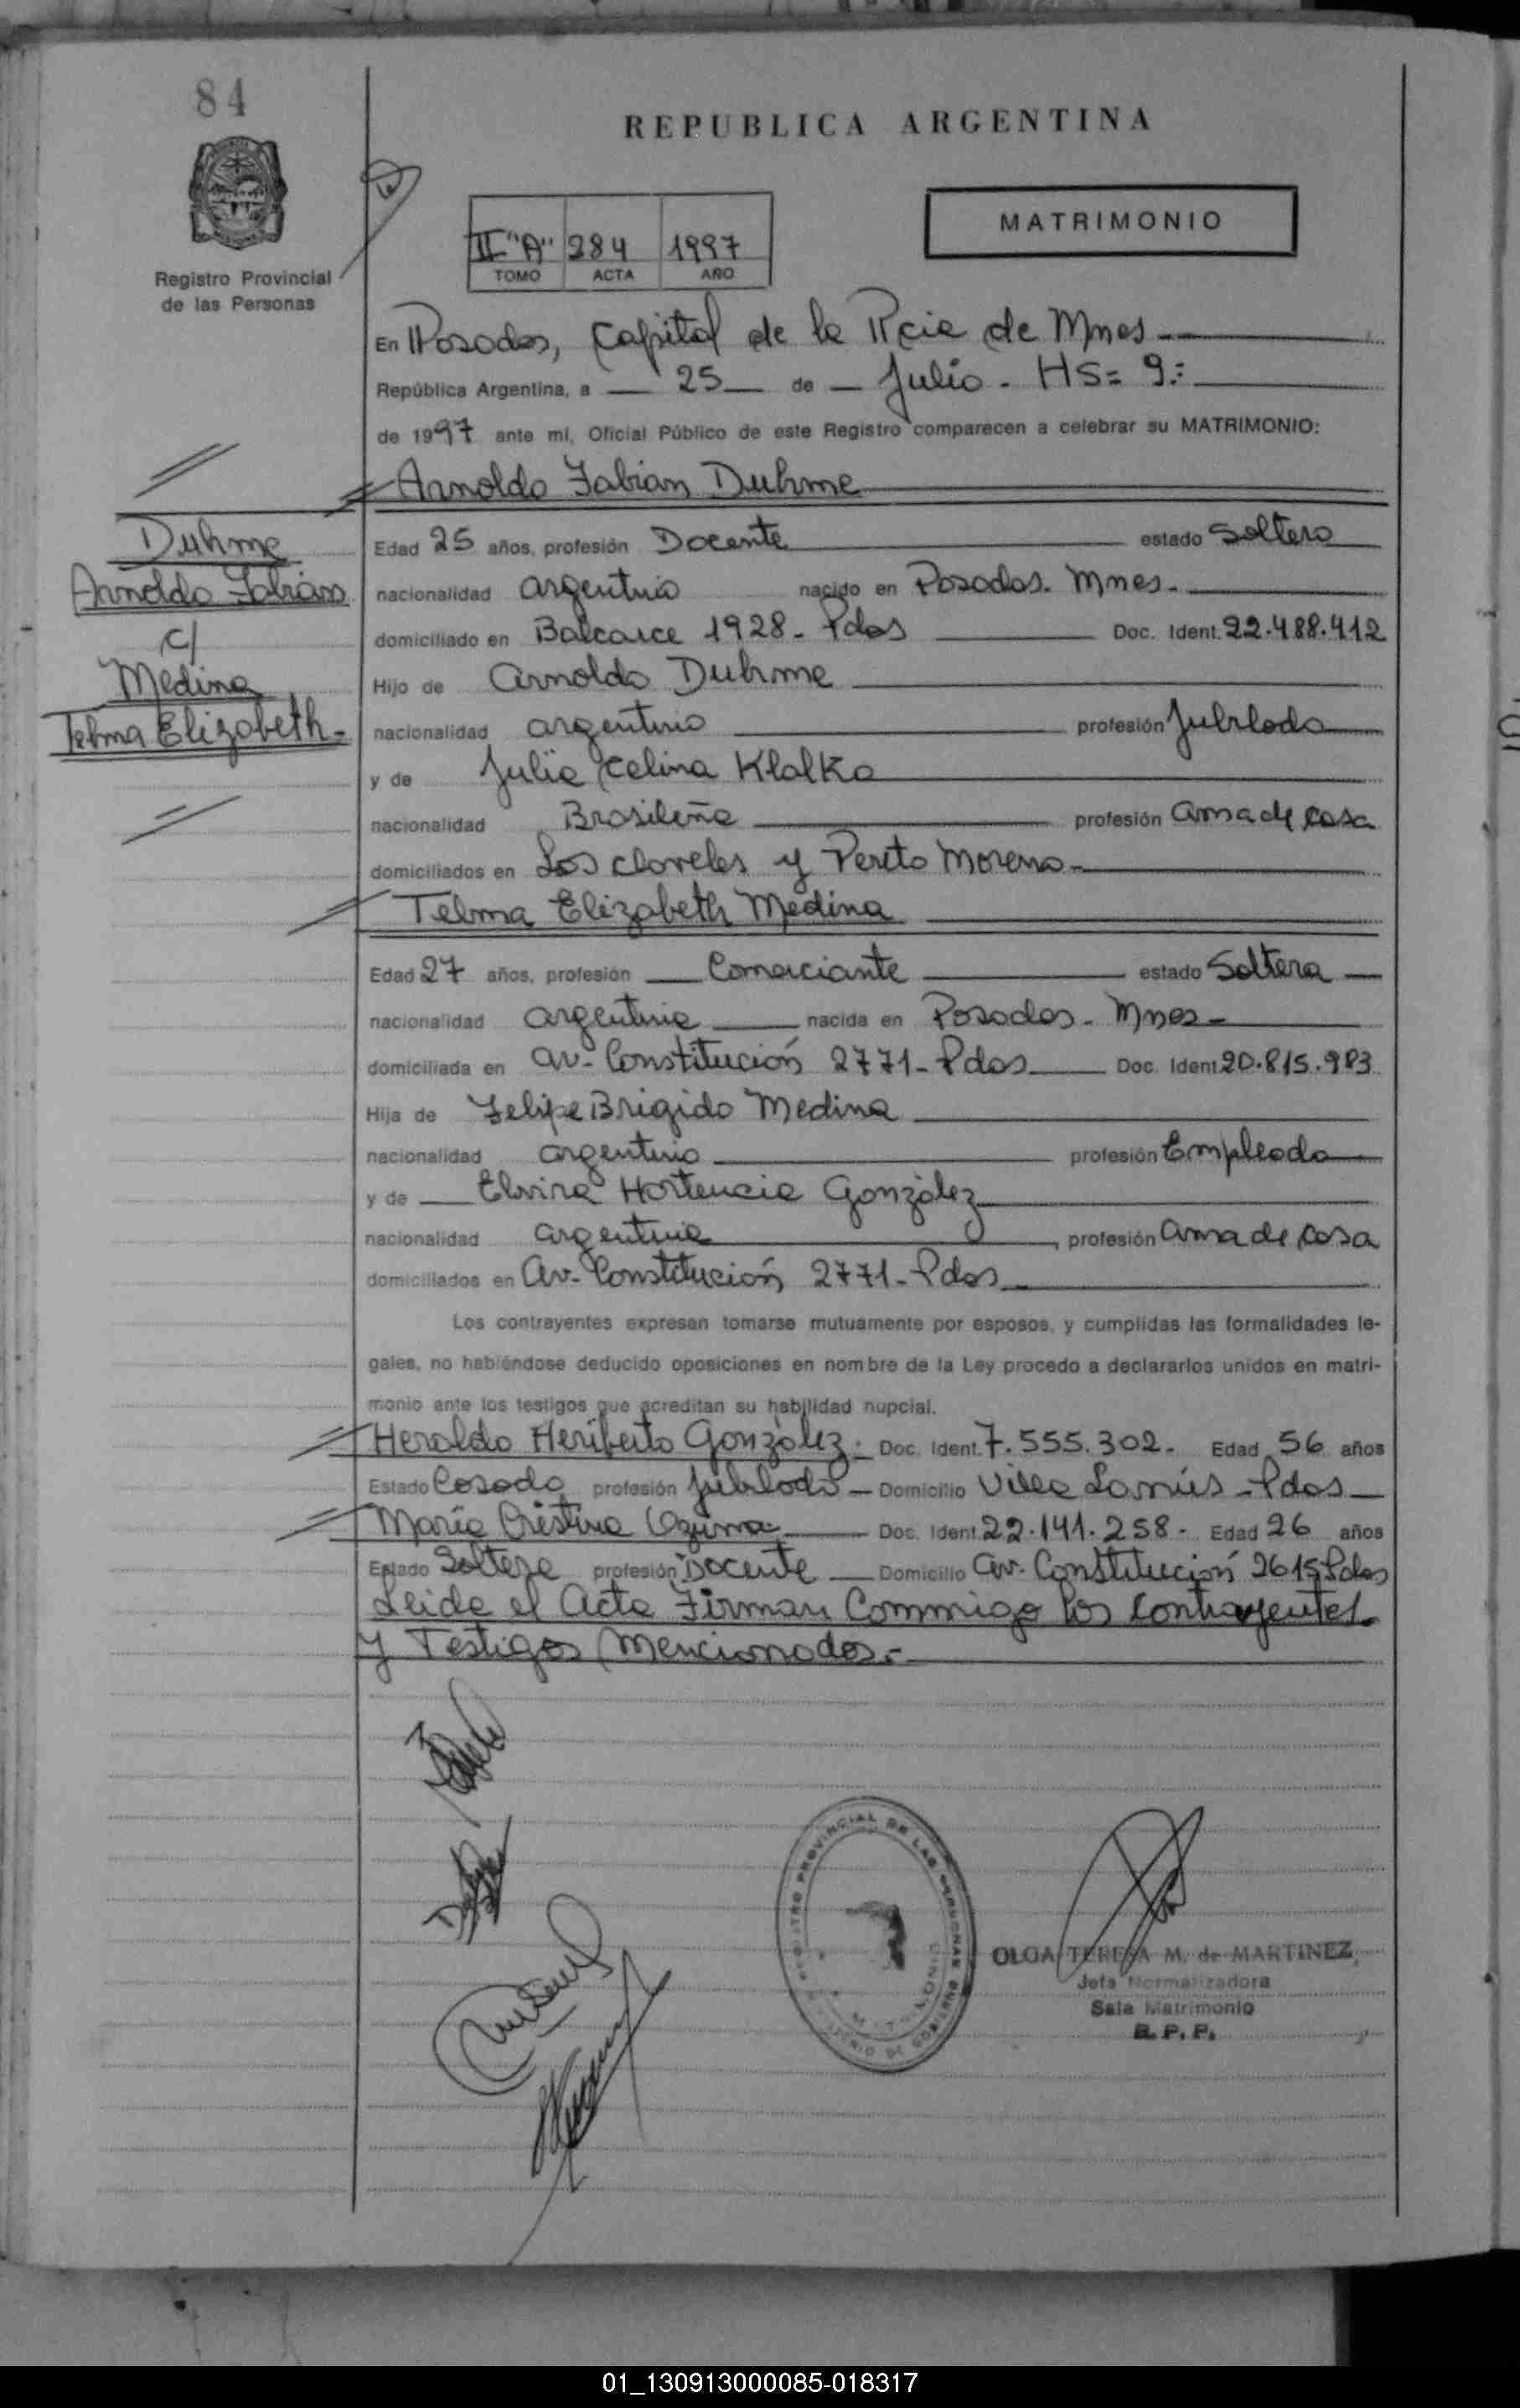 84
REPUBLICA ARGENTINA
MATRIMONIO
II "A" 284 1997
TOMO ACTA AÑO
Registro Provincial
de las Personas
En Posadas, Capital de la Pcia de Mnes
República Argentina, a 25 de Julio - HS= 9:
de 1997 ante mí, Oficial Público de este Registro comparecen a celebrar su MATRIMONIO:
Arnoldo Fabian Duhme
Duhme
Arnoldo Fabián
c/
Medina
Telma Elizabeth-
Edad 25 años, profesión Docente estado Soltero
nacionalidad argentino nacido en Posadas. Mnes.
domiciliado en Balcarce 1928 - Pdas Doc. Ident. 22.488.412
Hijo de Arnoldo Duhme
nacionalidad argentino profesión Jubilado
y de Julia Celina Klalka
nacionalidad Brasileña profesión ama de casa
domiciliados en Los claveles y Perito Moreno-
Telma Elizabeth Medina
Edad 27 años, profesión Comerciante estado Soltera
nacionalidad argentina nacida en Posadas - Mnes-
domiciliada en av- Constitución 2771- Pdas Doc. Ident 20.815.983
Hija de Felipe Brigido Medina
nacionalidad argentino profesión Empleado
y de Elvira Hortencia González
nacionalidad argentina profesión ama de casa
domiciliados en av- Constitución 2771- Pdas
Los contrayentes expresan tomarse mutuamente por esposos, y cumplidas las formalidades le-
gales, no habiéndose deducido oposiciones en nombre de la Ley procedo a declararlos unidos en matri-
monio ante los testigos que acreditan su habilidad nupcial.
Heraldo Heriberto González. Doc. Ident. 7.555.302. Edad 56 años
Estado Casado profesión Jubilado - Domicilio Villa Lanús - Pdas
María Cristina Doc. Ident. 22.141.258- Edad 26 años
Estado Soltera profesión Docente Domicilio av. Constitución 2615 Pdas
Leida el Acta Firman Commigo los Contrayentes
y Testigos Mencionados.-
REGISTRO PROVINCIAL DE LAS PERSONAS
MINISTERIO DE GOBIERNO
MATRIMONIO
OLGA TERESA M. de MARTINEZ
Jefa Normalizadora
Sala Matrimonio
R. P. P.
01_130913000085-018317